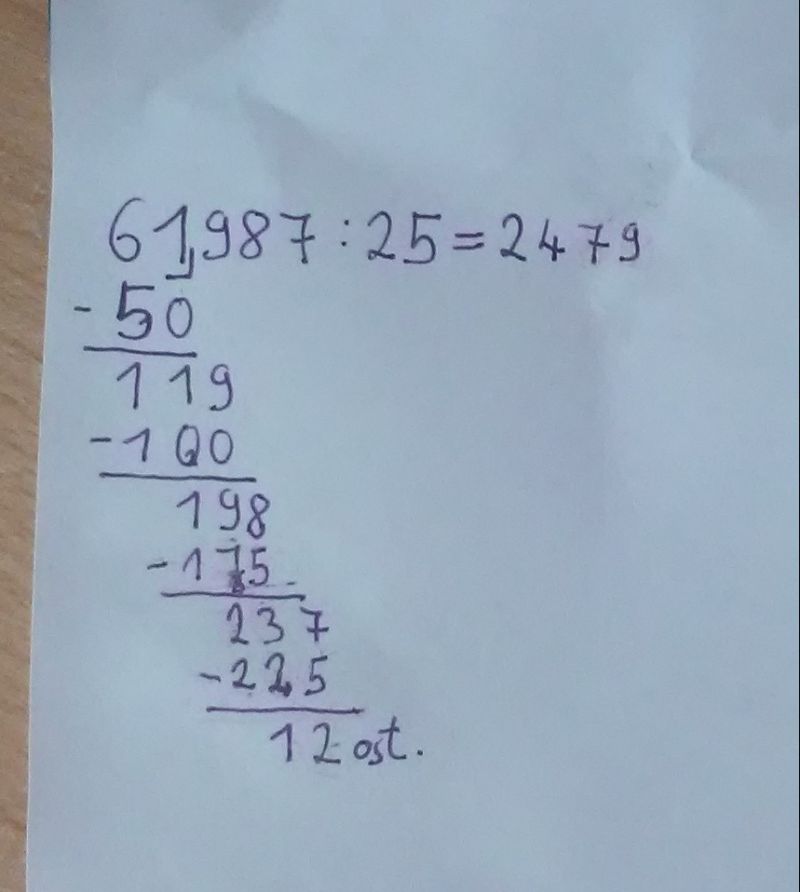 61,987:25=2479
-50
119
-100
198
-175
237
-225
12 ost.